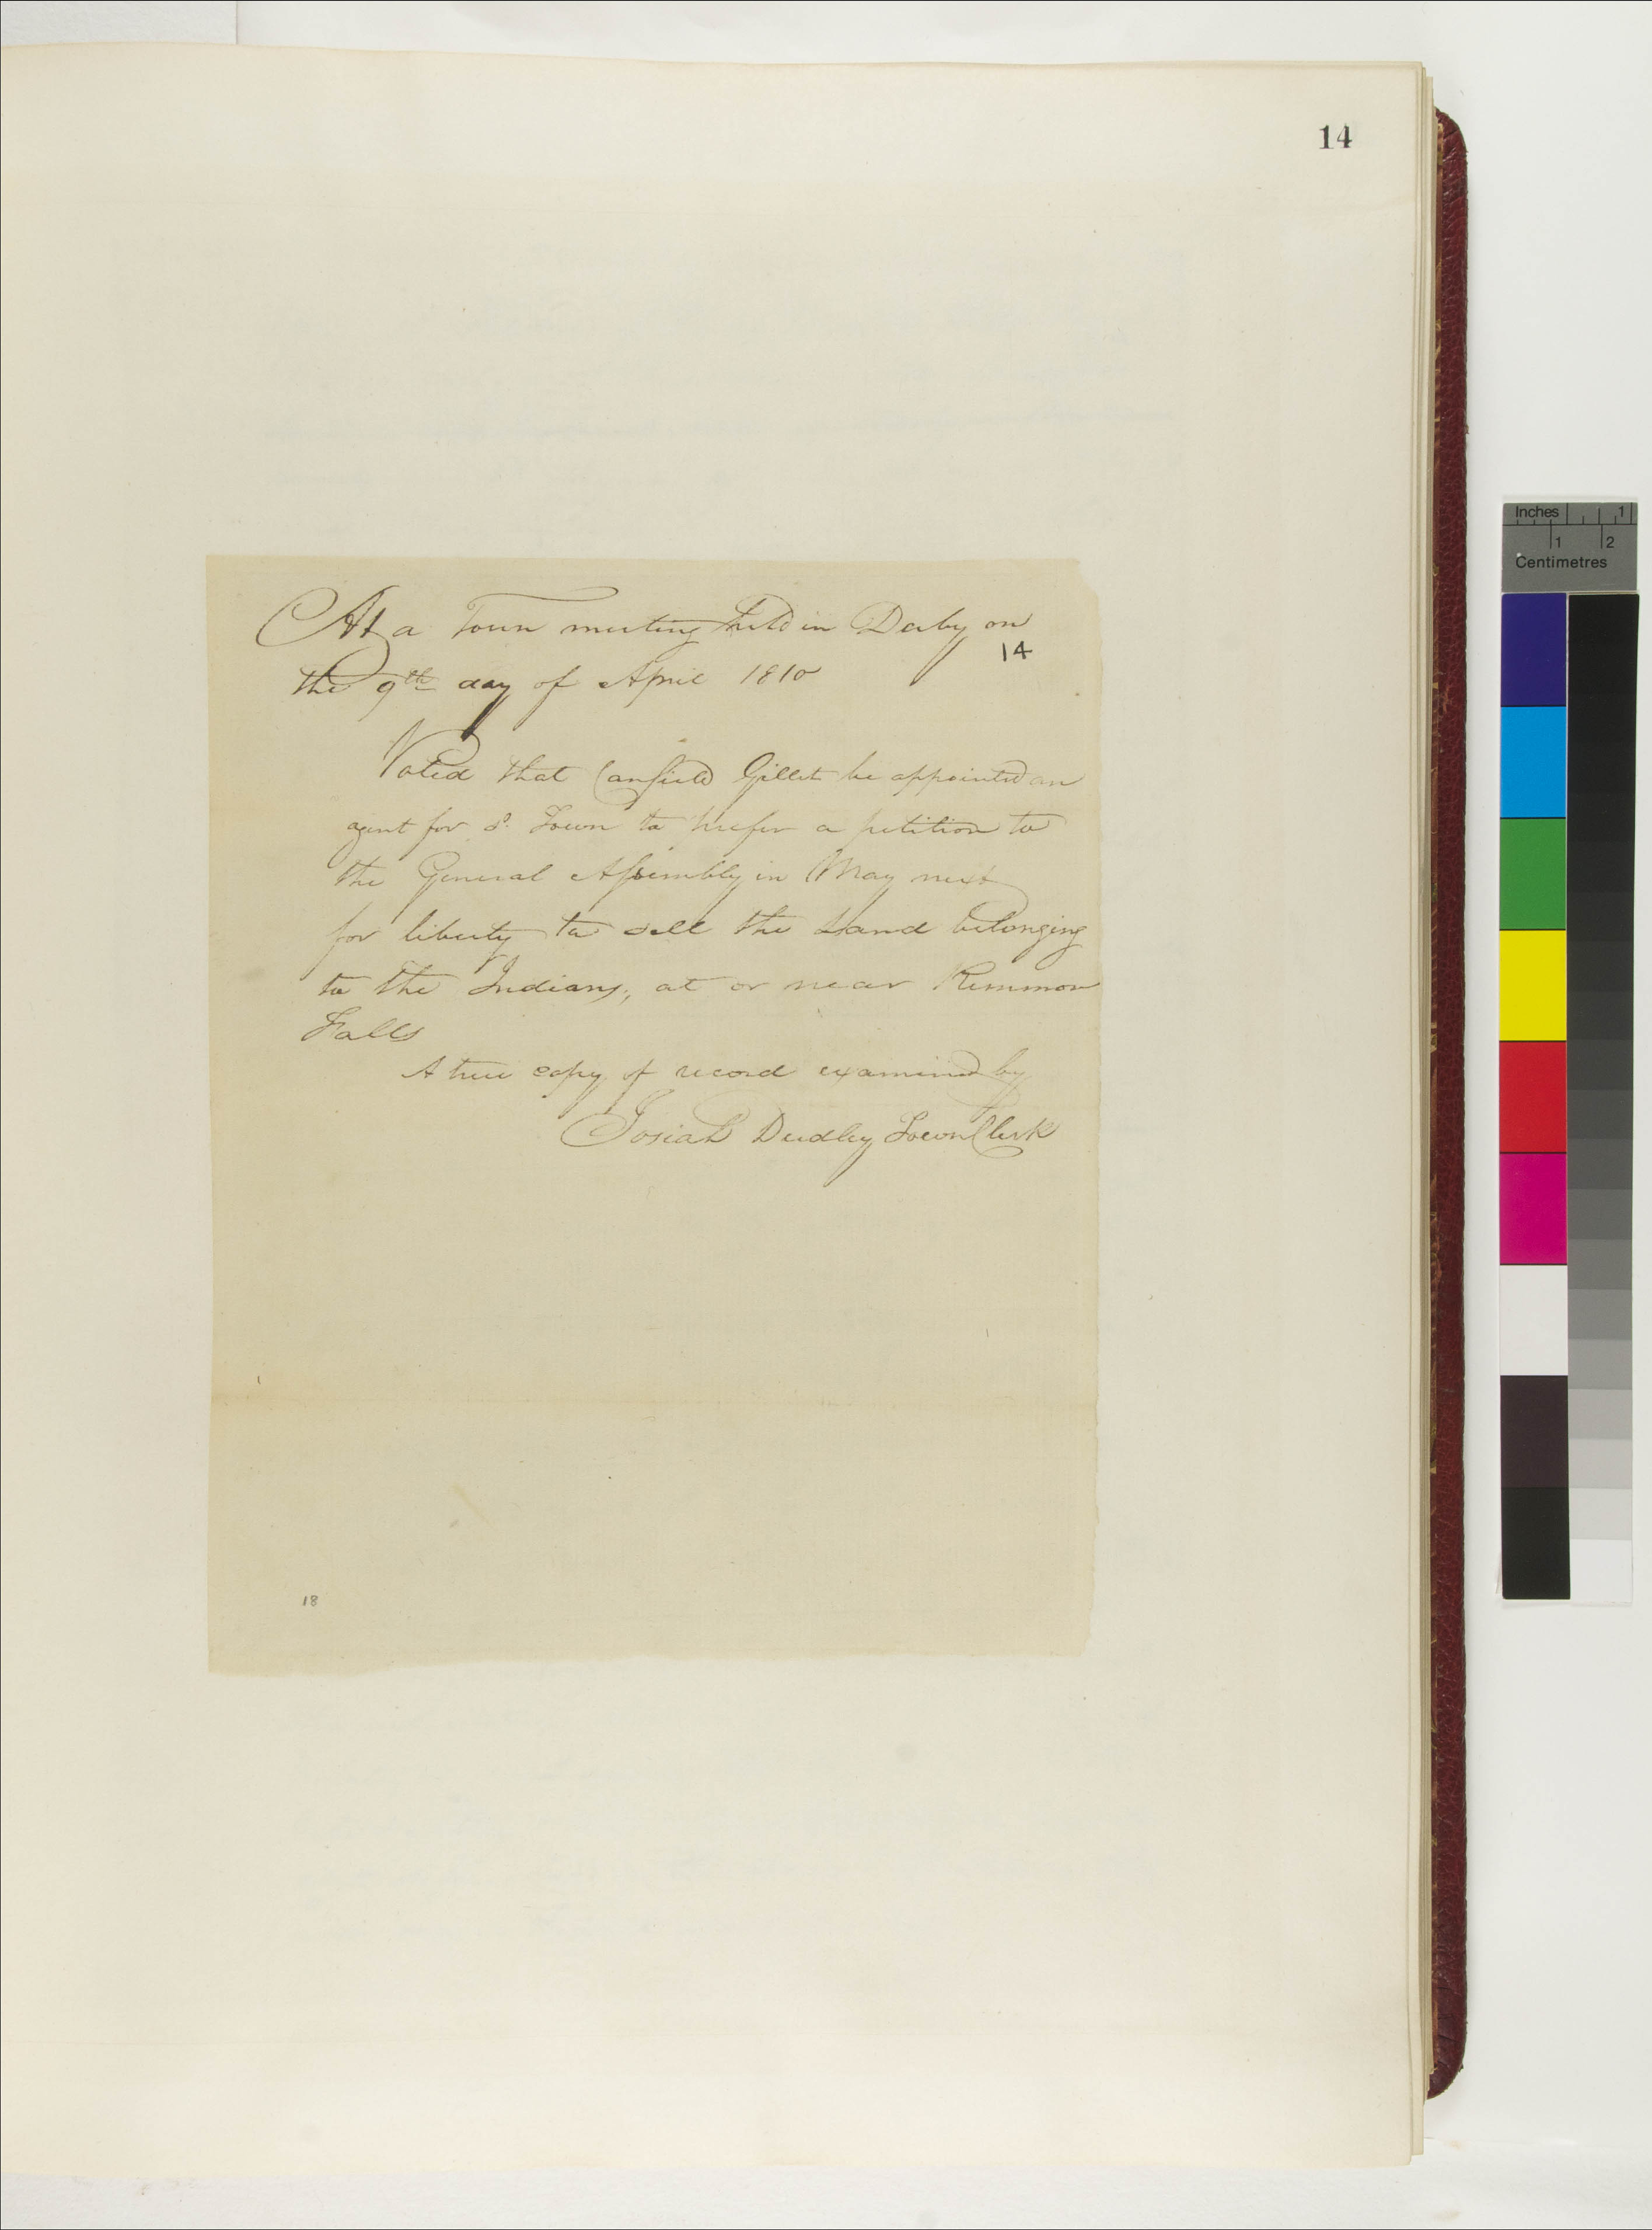 14
At a Town meeting held in Derby on
14
the 9th day of April 1810
Voted that Canfield Gillet be appointed an
agent for sd. Town to prefer a petition to
the General Assembly in May next
for liberty to sell the Land belonging
to the Indians, at or near Rimmon
Falls
A true copy of record examined by
Josiah Dudley Town Clerk
18
Inches 1
1 2
Centimetres